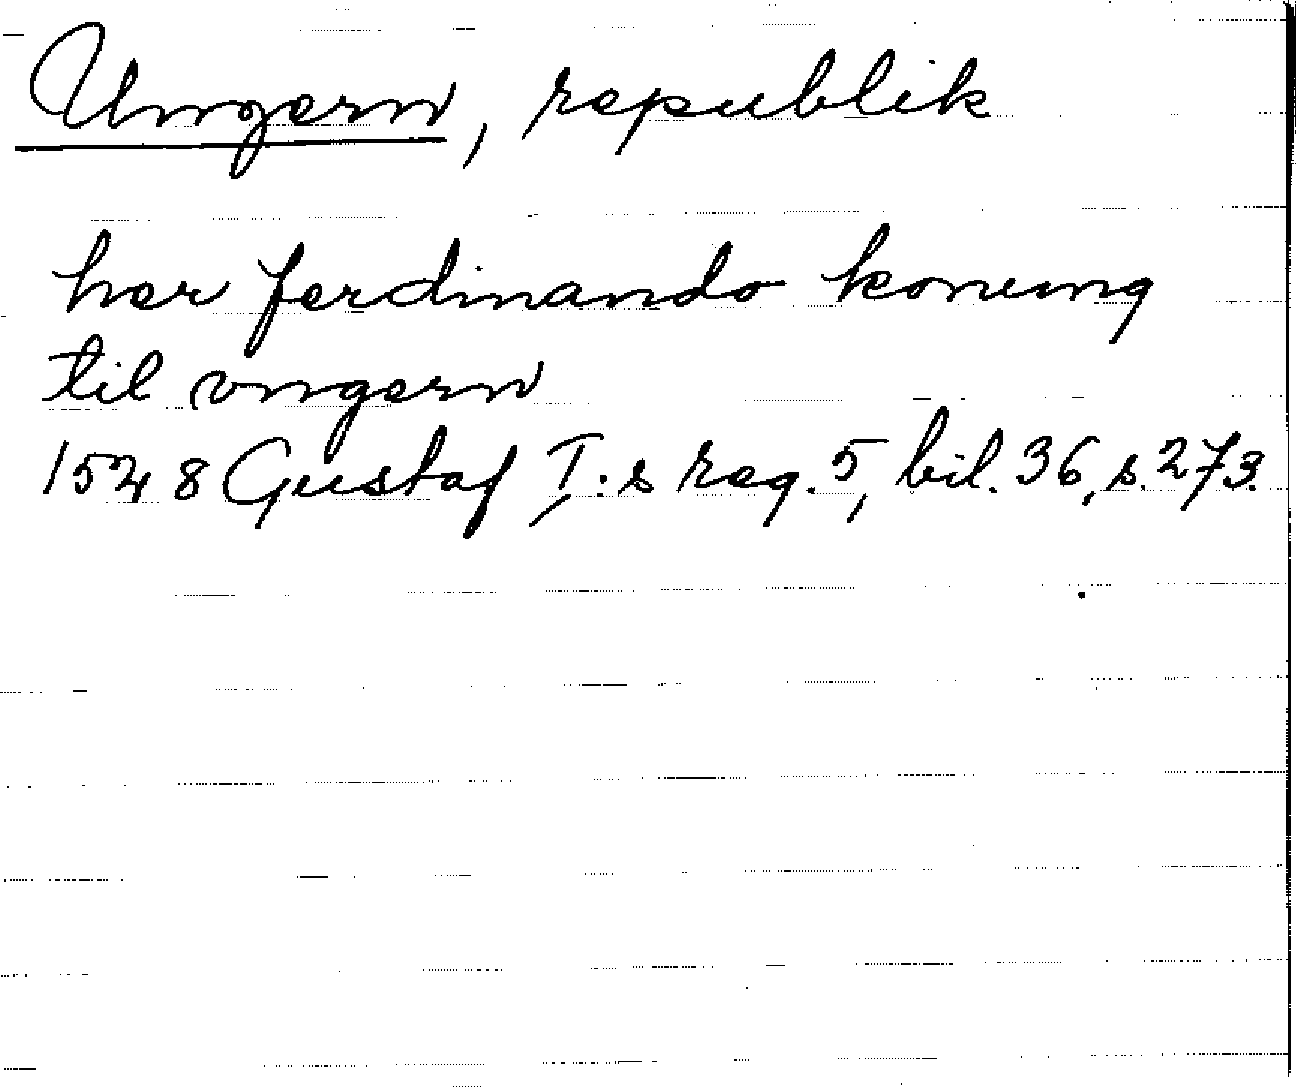 Ungern, republik
her ferdinando konung
til vngern
1528 Gustaf I:s reg. 5, bil. 36, s. 273.